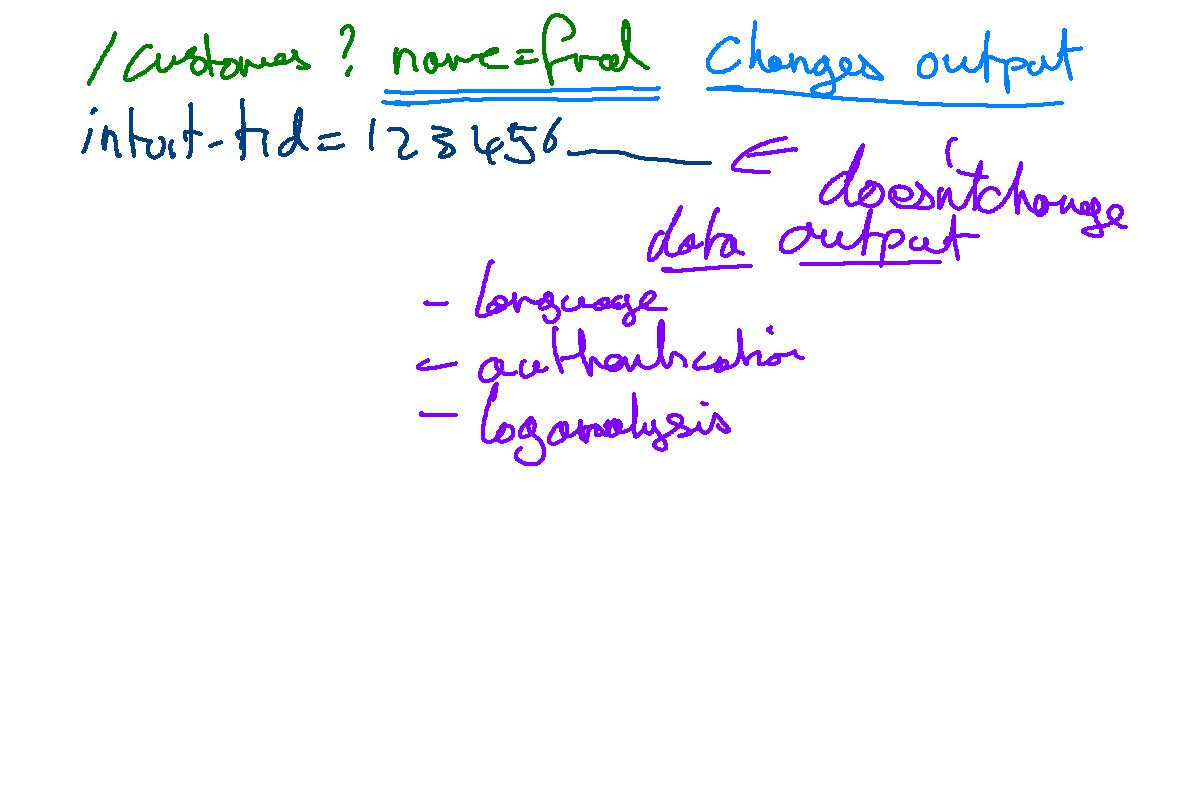 /customers ? name=fred changes output
intuit-tid= 123456
doesn't change
data output
- language
- authentication
- log analysis